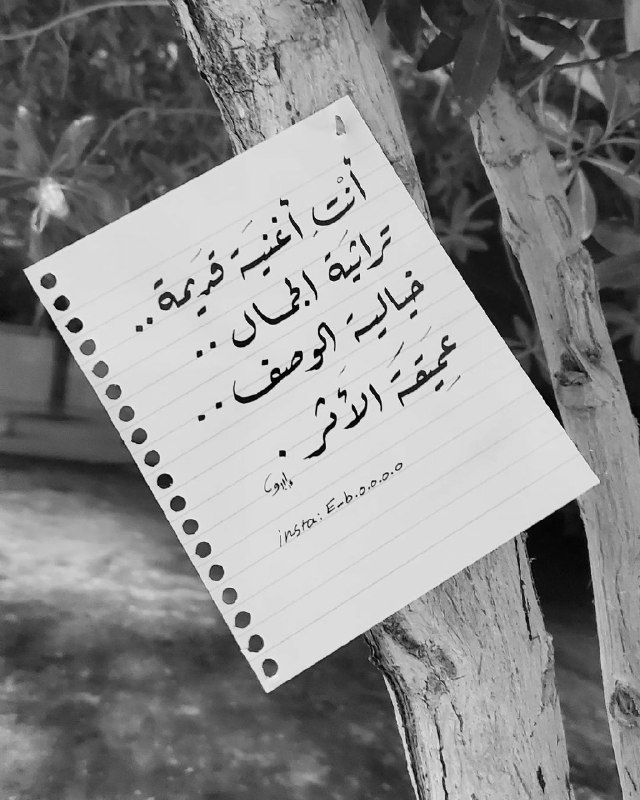 أنْتِ أغنيَة قديَمة..
تراثيَة الجمال..
خيالية الوصف..
عِميَقةَ الأَثر.
insta: E_b.o.o.o.o